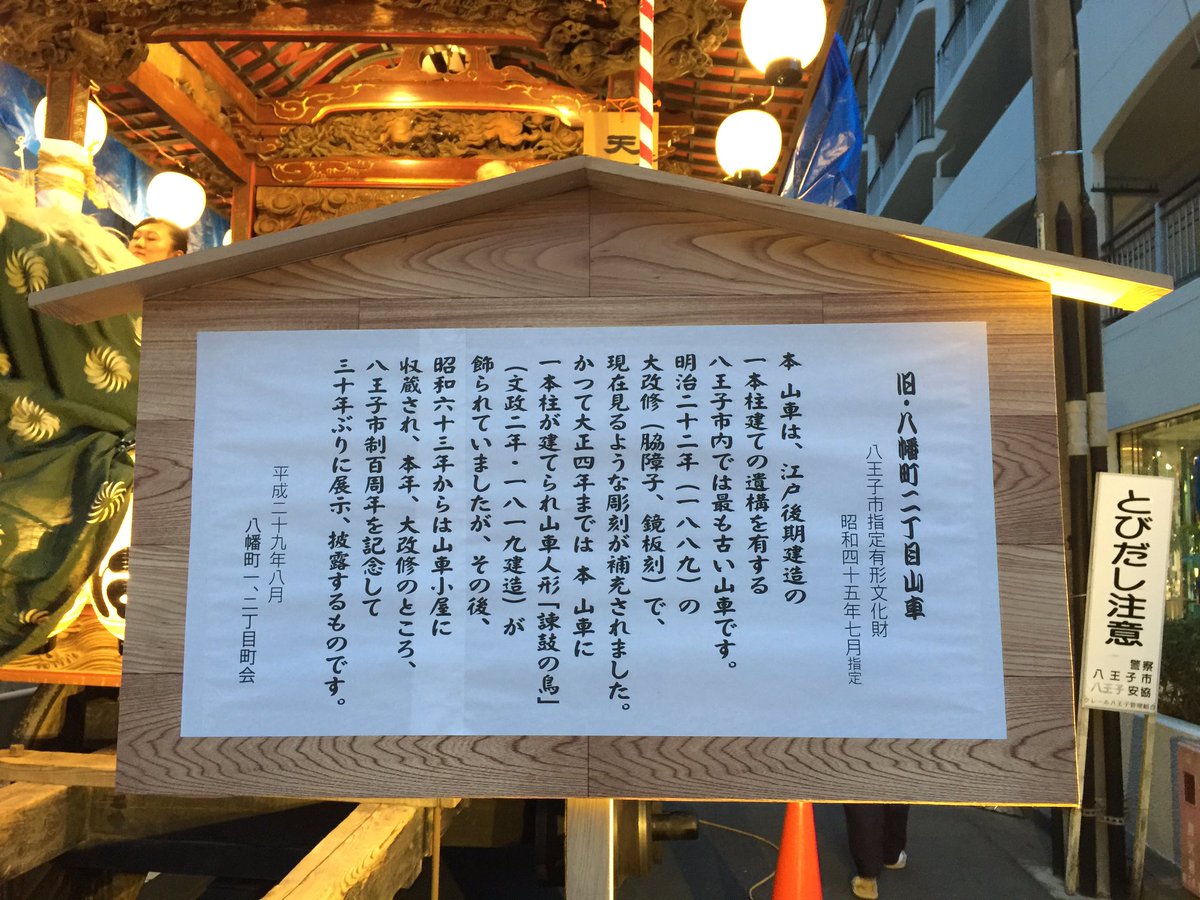 旧・八幡町二丁目山車
八王子市指定有形文化財
昭和四十五年七月指定
本 山車は、江戸後期建造の
一本柱建ての遺構を有する
八王子市内では最も古い山車です。
明治二十二年(一八八九)の
大改修(脇障子、鏡板刻)で、
現在見るような彫刻が補充されました。
かつて大正四年までは 本 山車に
一本柱が建てられ山車人形「諌鼓の鳥」
(文政二年・一八一九建造)が
飾られていましたが、その後、
昭和六十三年からは山車小屋に
収蔵され、本年、大改修のところ、
八王子市制百周年を記念して
三十年ぶりに展示、披露するものです。
平成二十九年八月
八幡町一、二丁目町会
天
とびだし注意
警察
八王子市
八王子安協
クレール八王子管理組合